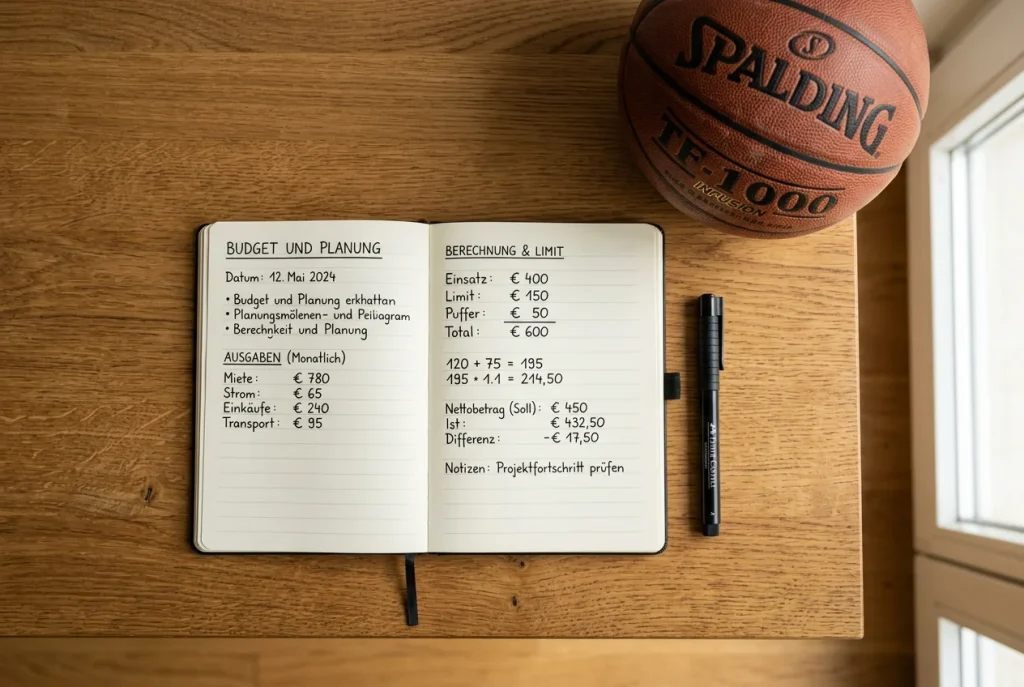 SPALDING
TF-1000
INFUSION
BUDGET UND PLANUNG
Datum: 12. Mai 2024
• Budget und Planung erkhattan
• Planungsmölenen- und Peiliagram
• Berechnkeit und Planung
AUSGABEN (Monatlich)
Miete: € 780
Strom: € 65
Einkäufe: € 240
Transport: € 95
BERECHNUNG & LIMIT
Einsatz: € 400
Limit: € 150
Puffer: € 50
Total: € 600
120 + 75 = 195
195 * 1.1 = 214,50
Nettobetrag (Soll): € 450
Ist: € 432,50
Differenz: -€ 17,50
Notizen: Projektfortschritt prüfen